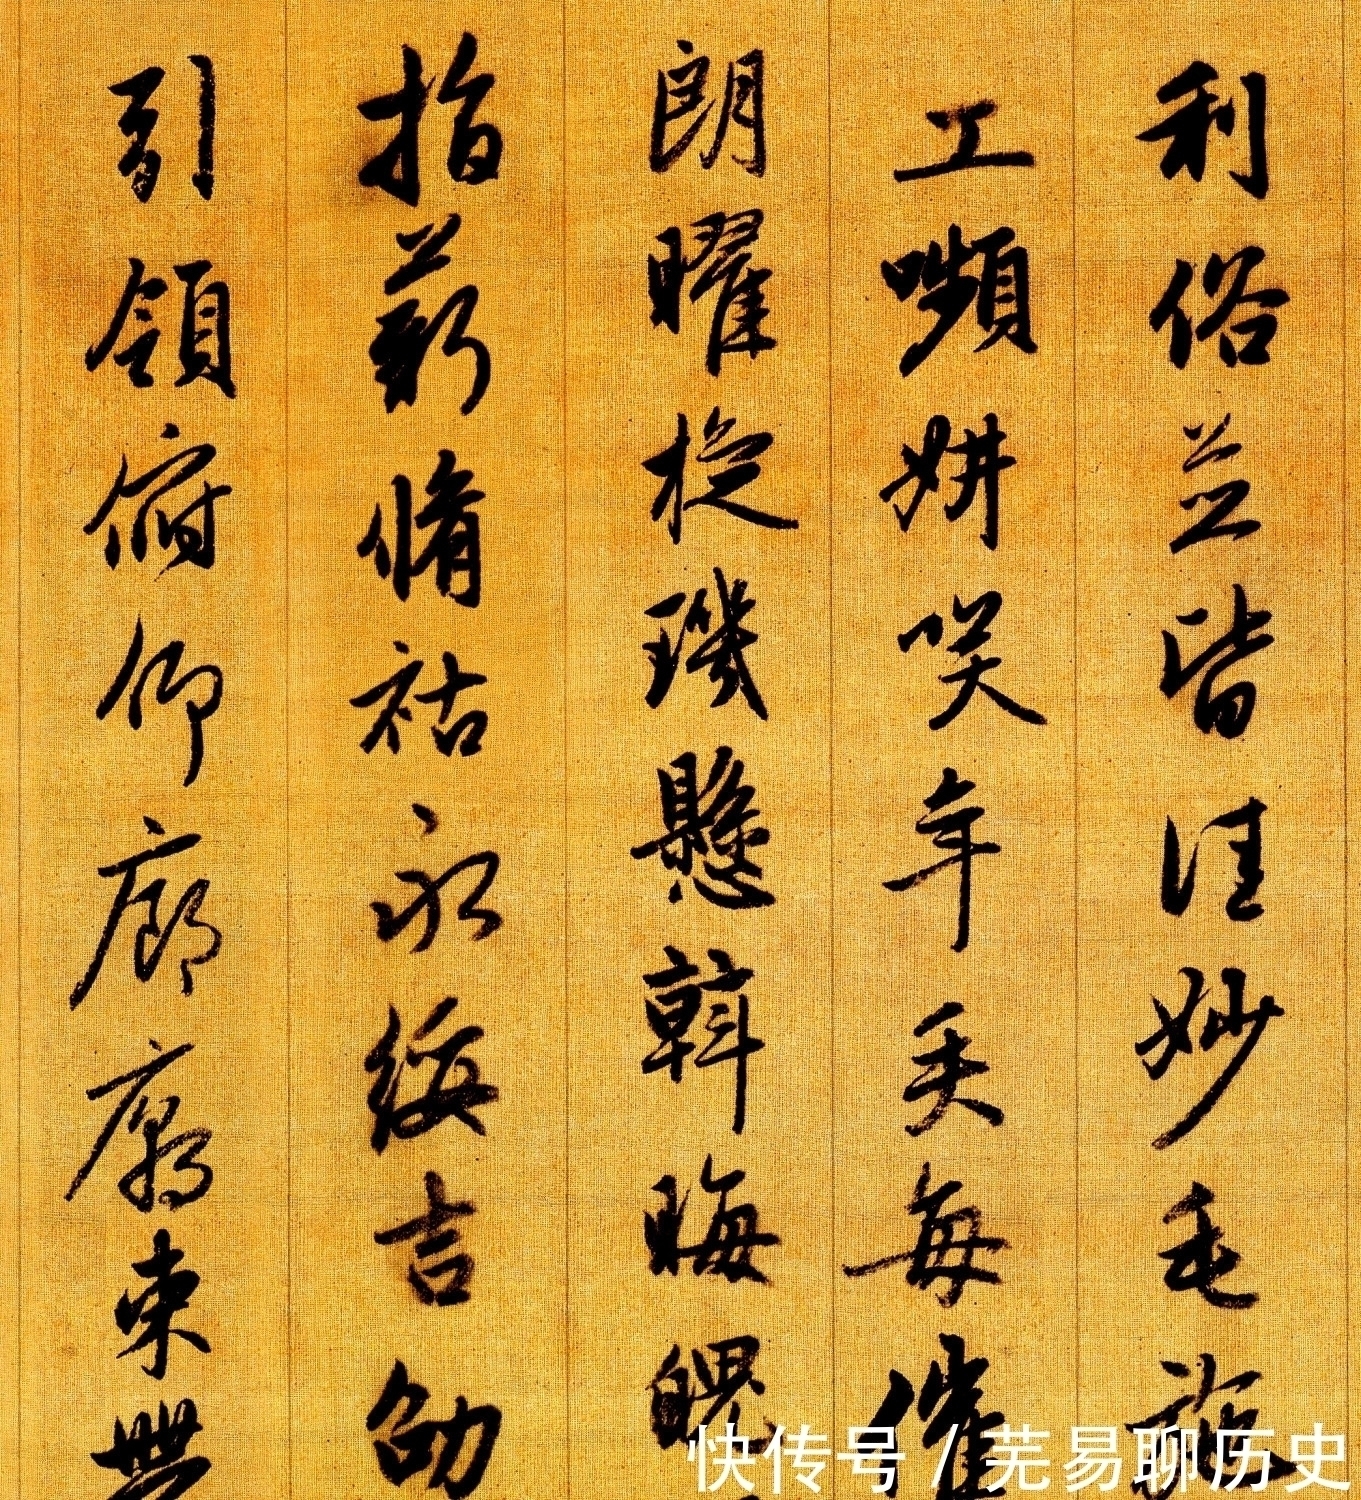 利俗並皆佳妙毛施
工嚬妍笑年矢每催
朗曜旋璣懸斡晦魄
指薪脩祜永綏吉劭
引領俯仰廊廟束帶
快传号 / 芜易聊历史